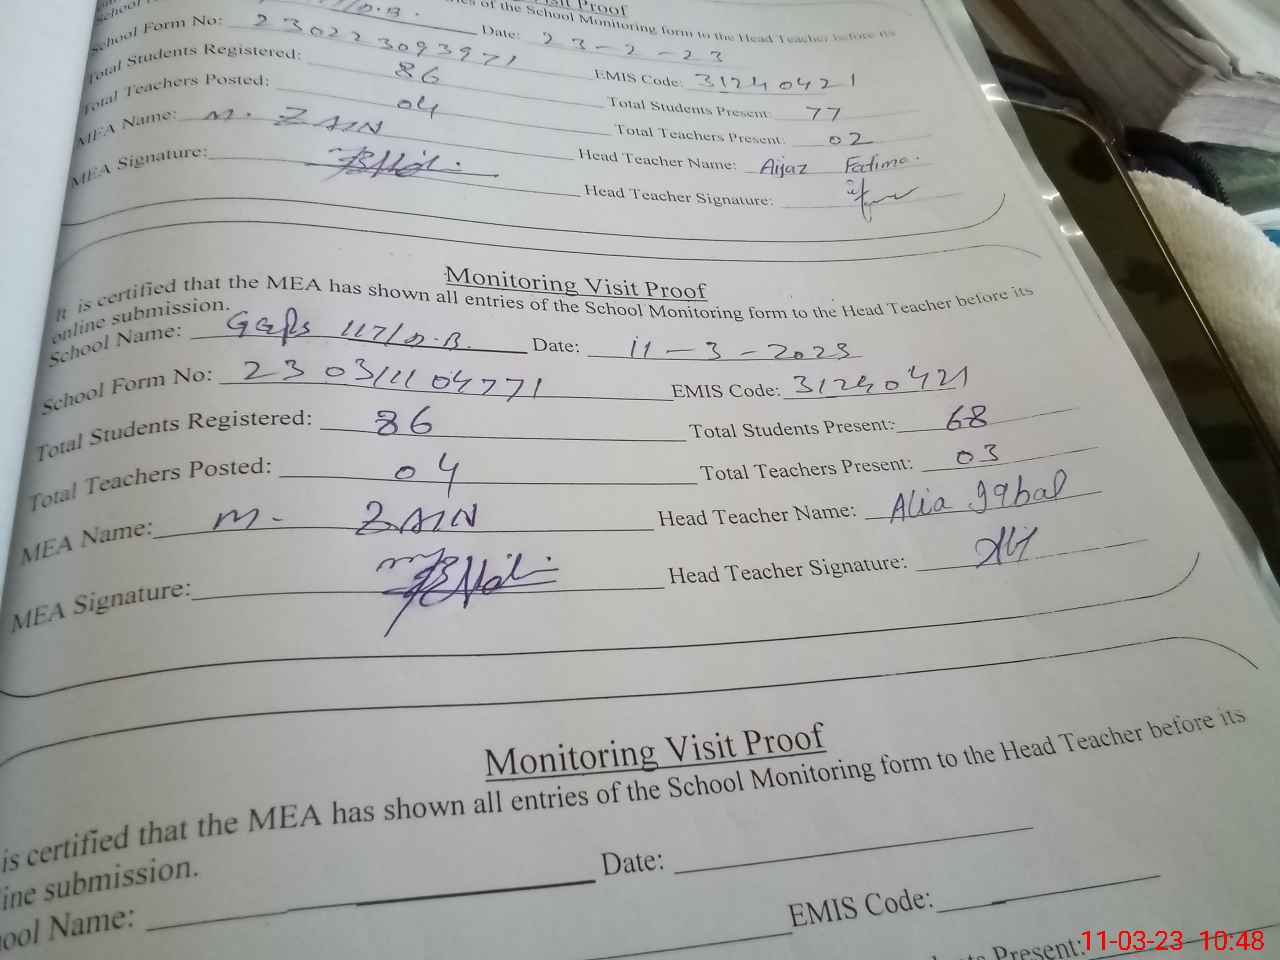 Visit Proof
ries of the School Monitoring form to the Head Teacher before its
School Form No: 230223093971 Date: 23-2-23
Total Students Registered: 86 EMIS Code: 31240421
Total Teachers Posted: 04 Total Students Present: 77
MEA Name: M. ZAIN Total Teachers Present: 02
MEA Signature: Head Teacher Name: Aijaz Fatima.
Head Teacher Signature:
Monitoring Visit Proof
It is certified that the MEA has shown all entries of the School Monitoring form to the Head Teacher before its
online submission.
School Name: GGPS 117/D.B. Date: 11-3-2023
School Form No: 230311104771 EMIS Code: 31240421
Total Students Registered: 86 Total Students Present: 68
Total Teachers Posted: 04 Total Teachers Present: 03
MEA Name: M. ZAIN Head Teacher Name: Alia Iqbal
MEA Signature: Head Teacher Signature:
Monitoring Visit Proof
is certified that the MEA has shown all entries of the School Monitoring form to the Head Teacher before its
ine submission.
ool Name: Date:
EMIS Code:
Present:
11-03-23 10:48